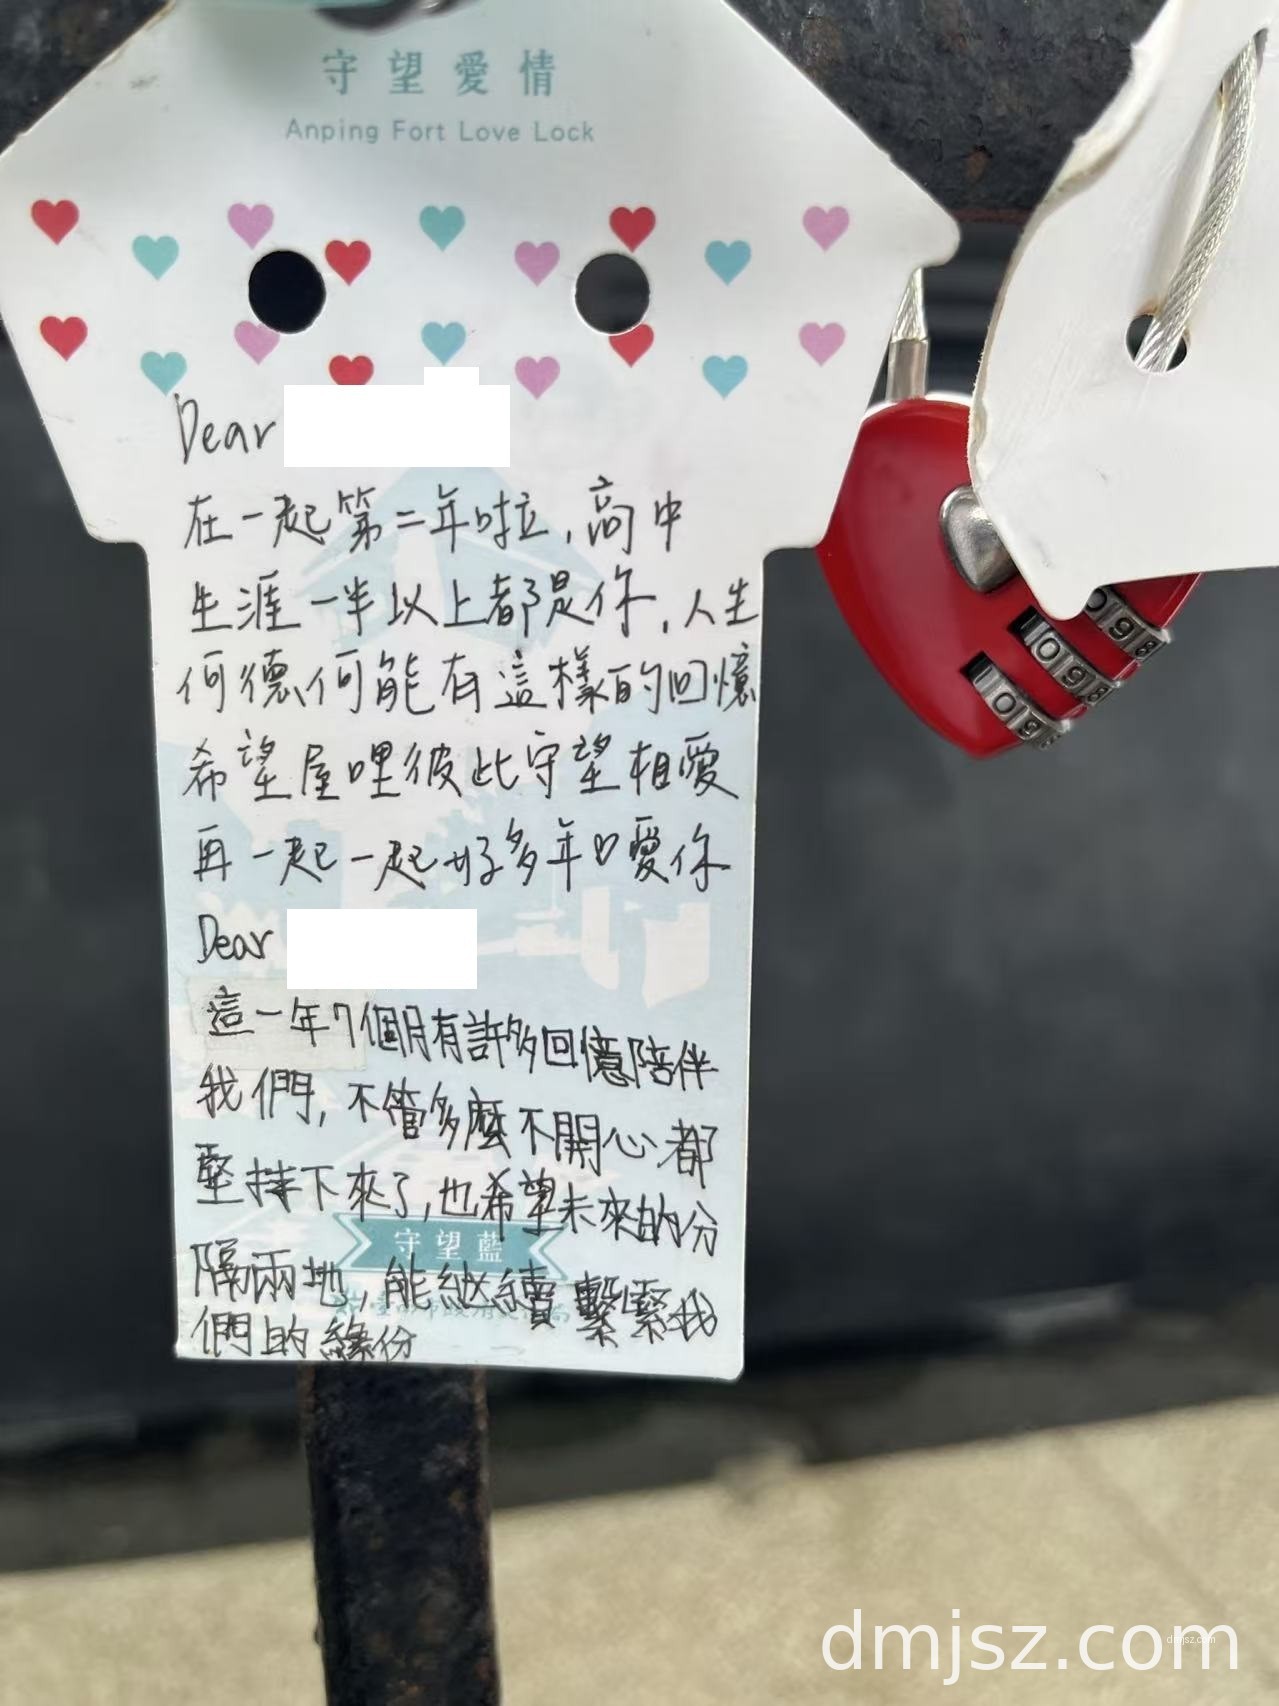 守望愛情
Anping Fort Love Lock
Dear
在一起第二年啦,高中
生涯一半以上都是你,人生
何德何能有這樣的回憶
希望屋哩彼此守望相愛
再一起一起好多年♡愛你
Dear
這一年7個月有許多回憶陪伴
我們,不管多麼不開心都
堅持下來了,也希望未來的分
守望藍
隔兩地,能繼續繫緊我
們的緣份
098
098
109
dmjsz.com
dmjsz.com